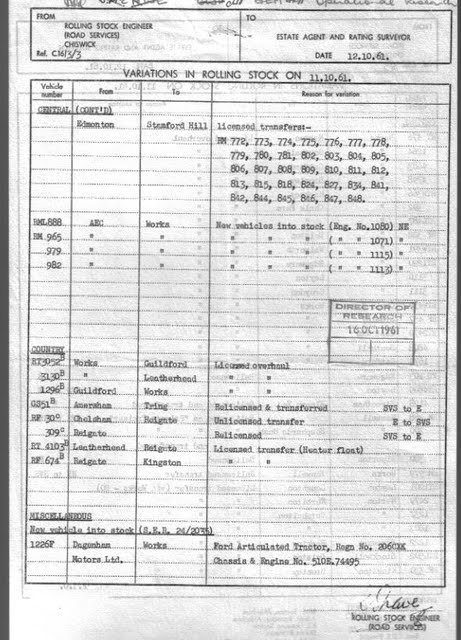 FROM
TO
ROLLING STOCK ENGINEER
(ROAD SERVICES)
CHISWICK
ESTATE AGENT AND RATING SURVEYOR
Ref. C16/3/3
DATE 12.10.61.
VARIATIONS IN ROLLING STOCK ON 11.10.61.
Vehicle number From To Reason for variation
CENTRAL (CONT'D)
Edmonton Stamford Hill licensed transfers:-
RM 772, 773, 774, 775, 776, 777, 778,
779, 780, 781, 802, 803, 804, 805,
806, 807, 808, 809, 810, 811, 812,
813, 815, 818, 824, 827, 834, 841,
842, 844, 845, 846, 847, 848.
RML888 AEC Works New vehicles into stock (Eng. No.1080) NE
RM 965 " " " " " ( " " 1071) "
979 " " " " " ( " " 1115) "
982 " " " " " ( " " 1113) "
DIRECTOR OF
RESEARCH
16 OCT 1961
COUNTRY
RT3052B Works Guildford Licensed overhaul
3130B " Leatherhead " "
1296B Guildford Works " "
GS51B Amersham Tring Relicensed & transferred SVS to E
RF 30C Chelsham Reigate Unlicensed transfer E to SVS
309C Reigate Relicensed SVS to E
RT 4103B Leatherhead Reigate Licensed transfer (Heater float)
RF 674B Reigate Kingston " "
MISCELLANEOUS
New vehicle into stock (S.E.R. 24/2036)
1226F Dagenham Works Ford Articulated Tractor, Regn No. 206CXK
Motors Ltd. Chassis & Engine No. 510E.74495
ROLLING STOCK ENGINEER
(ROAD SERVICES)